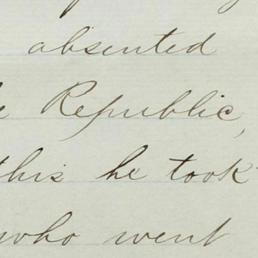 absented
Republic,
this he took
who went